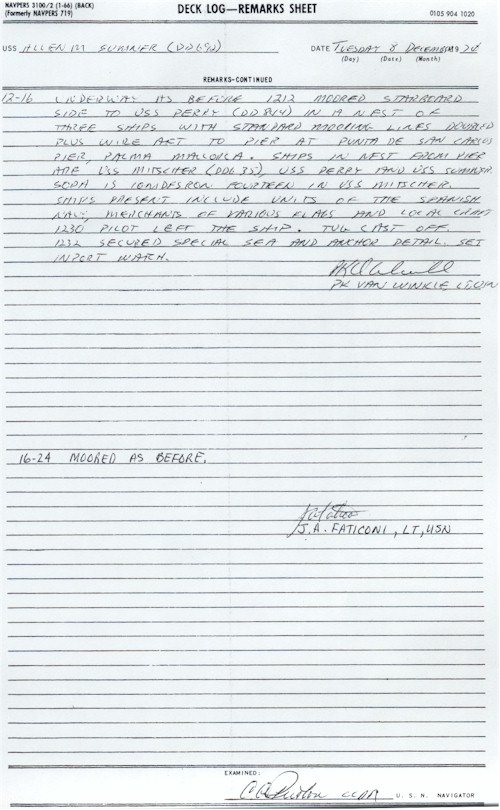 NAVPERS 3100/2 (1-66) (BACK)
(Formerly NAVPERS 719)
DECK LOG—REMARKS SHEET
0105 904 1020
USS ALLEN M SUMNER (DD692)
DATE TUESDAY 8 DECEMBER
(Day) (Date) (Month)
REMARKS-CONTINUED
12-16 UNDERWAY AS BEFORE 1212 MOORED STARBOARD
SIDE TO USS PERRY (DD 844) IN A NEST OF
THREE SHIPS WITH STANDARD MOORING LINES DOUBLED
PLUS WIRE AFT TO PIER AT PUNTA DE SAN CARLOS
PIER, PALMA MALLORCA. SHIPS IN NEST FROM PIER
ARE USS MITSCHER (DDG 35), USS PERRY AND USS SUMNER.
SOPA IS COMDESRON FOURTEEN IN USS MITSCHER.
SHIPS PRESENT INCLUDE UNITS OF THE SPANISH
NAVY, MERCHANTS OF VARIOUS FLAGS AND LOCAL CRAFT
1230 PILOT LEFT THE SHIP. TUG CAST OFF.
1232 SECURED SPECIAL SEA AND ANCHOR DETAIL. SET
INPORT WATCH.
PK VAN WINKLE, LT, USN
16-24 MOORED AS BEFORE.
J. A. FATICONI, LT, USN
EXAMINED:
U. S. N. NAVIGATOR